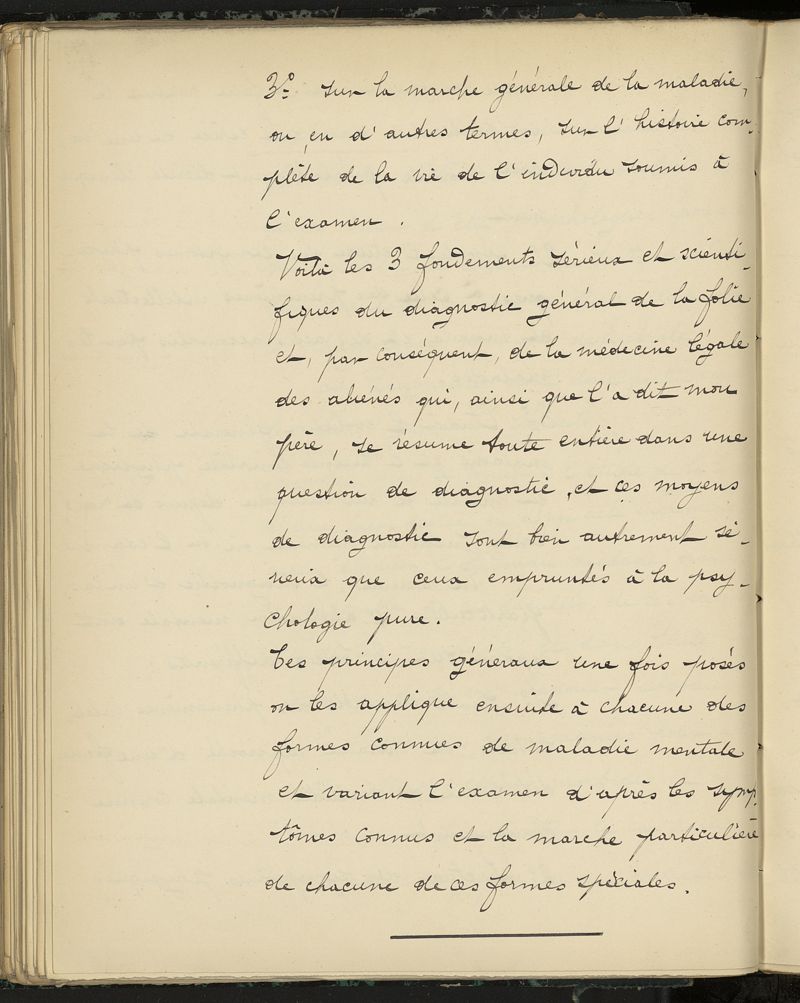 3º sur la marche générale de la maladie,
ou, en d'autres termes, sur l'histoire com-
plète de la vie de l'individu soumis à
l'examen.
Voilà les 3 fondements sérieux et scienti-
fiques du diagnostic général de la folie
et, par conséquent, de la médecine légale
des aliénés qui, ainsi que l'a dit mon
père, se résume toute entière dans une
question de diagnostic, et ces moyens
de diagnostic sont bien autrement sé-
rieux que ceux empruntés à la psy-
chologie pure.
Ces principes généraux une fois posés
on les applique ensuite à chacune des
formes connues de maladie mentale
et variant l'examen d'après les symp-
tômes connus et la marche particulière
de chacune de ces formes spéciales.